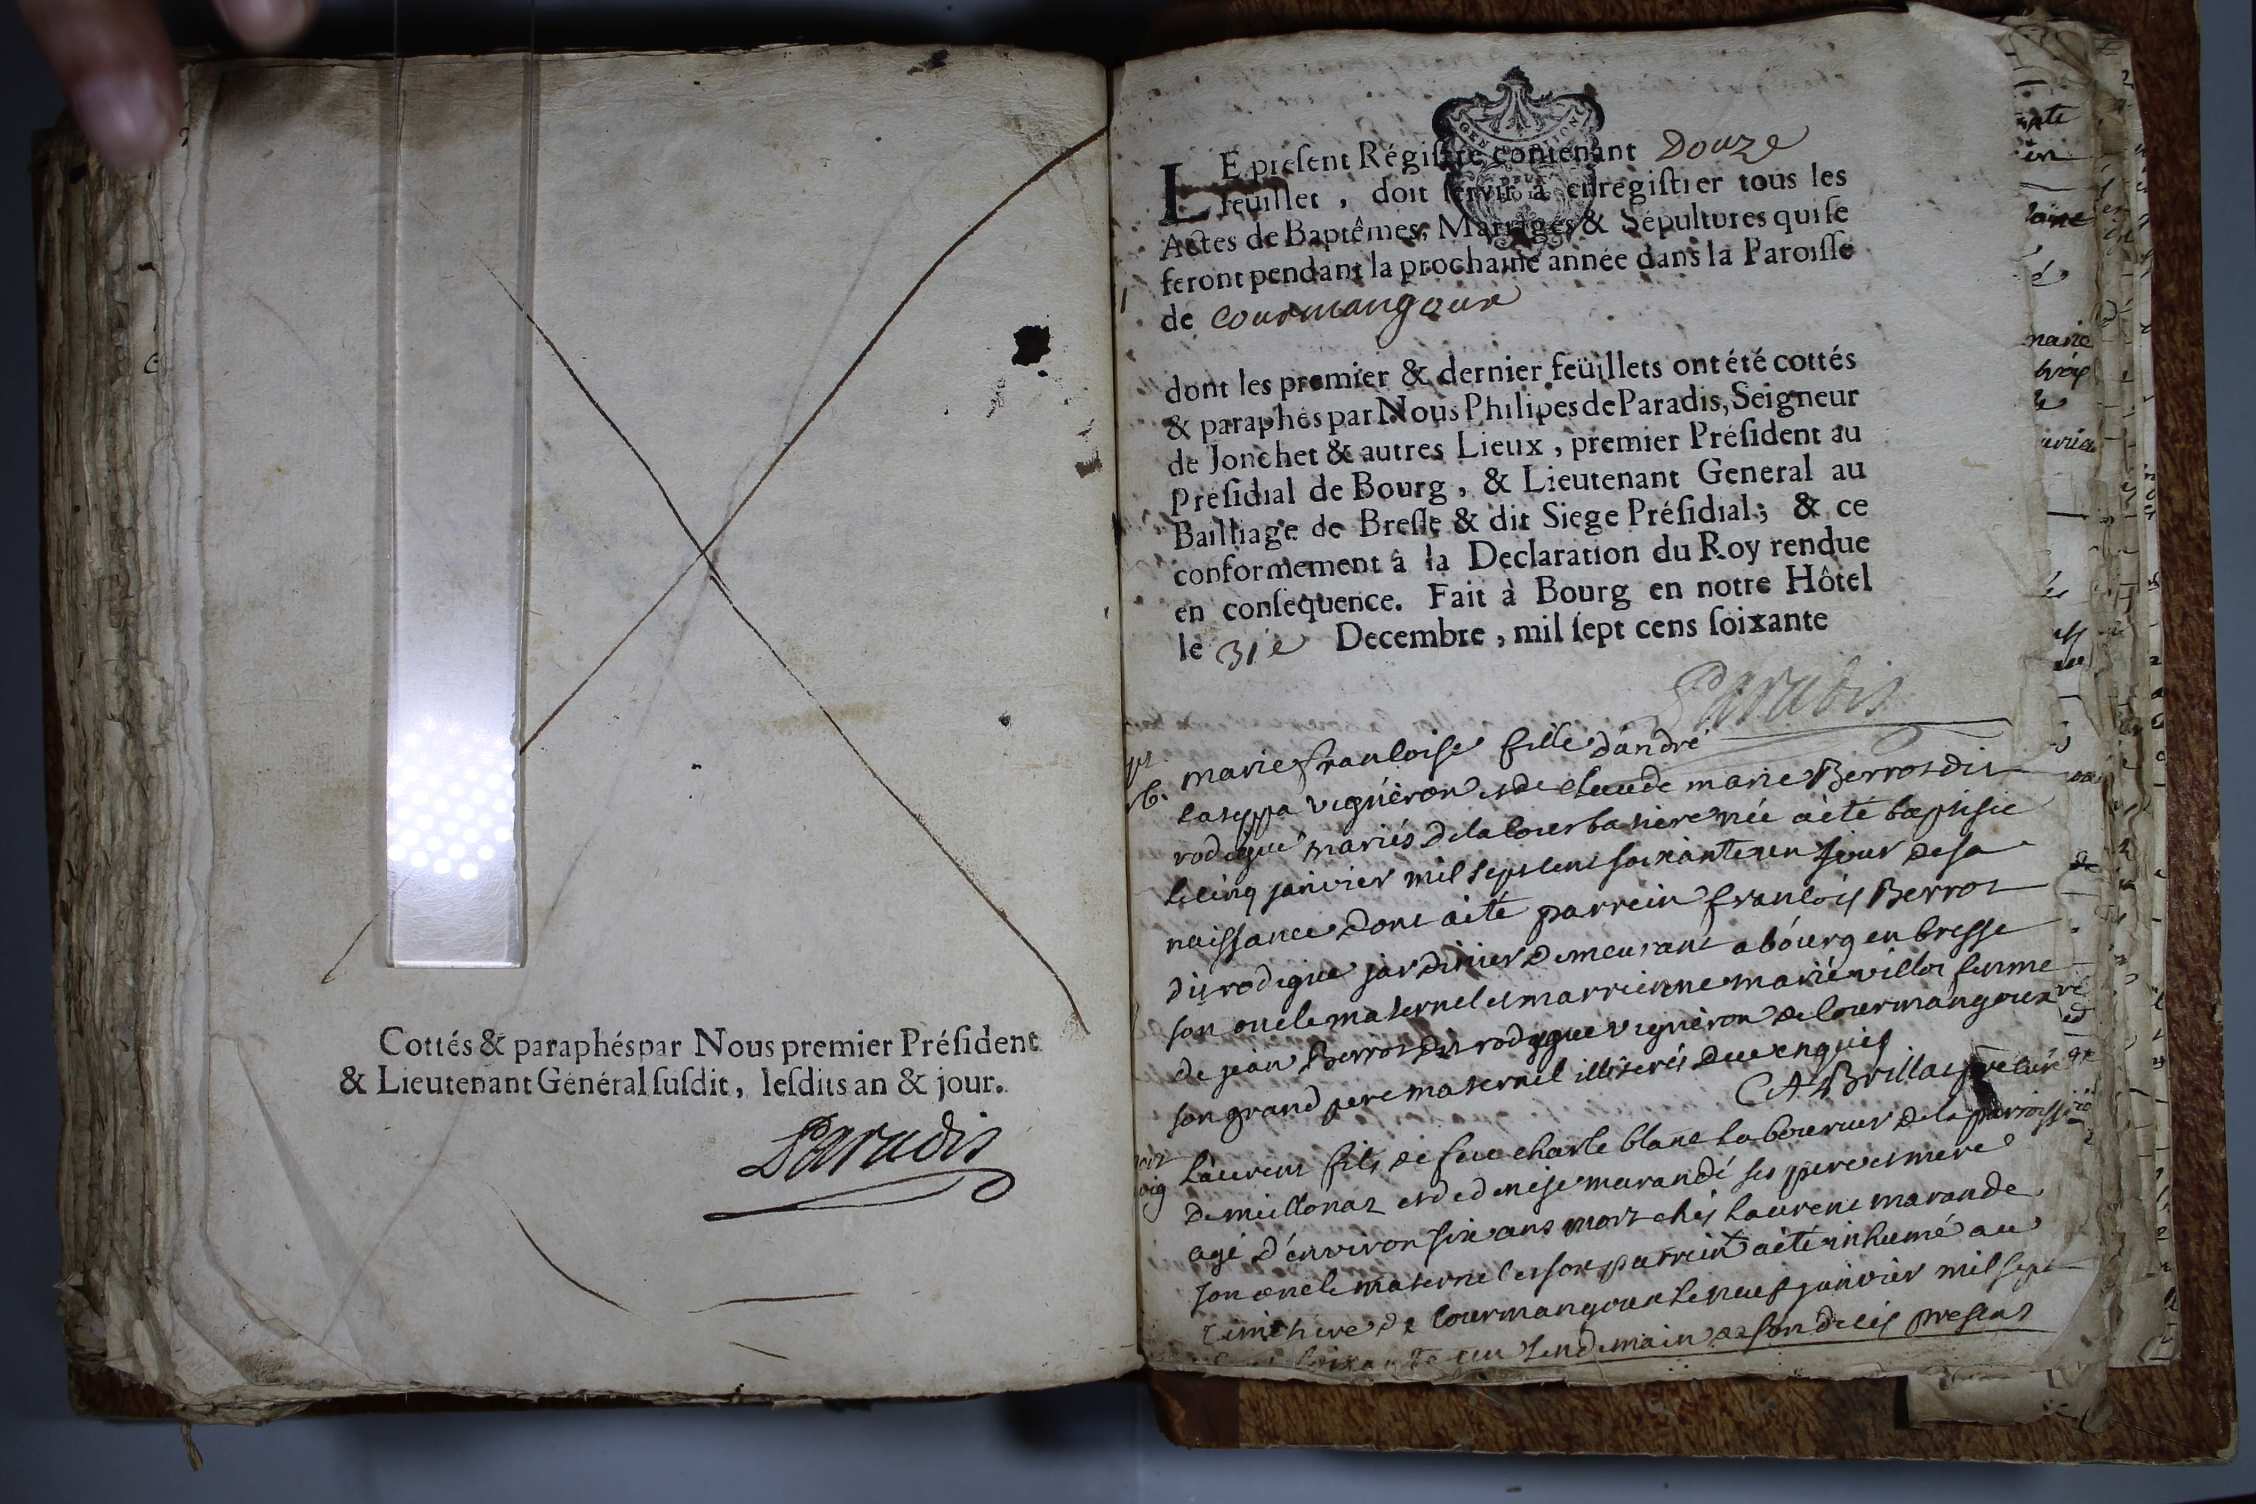 Cottés & paraphés par Nous premier Président
& Lieutenant Général susdit, lesdits an & jour.
Paradis
LE present Régistre contenant Douze
feuillet, doit servir à enregistrer tous les
Actes de Baptêmes, Mariages & Sépultures qui se
feront pendant la prochaine année dans la Paroisse
de Courmangoux
dont les premier & dernier feüillets ont été cottés
& paraphés par Nous Philipes de Paradis, Seigneur
de Jonchet & autres Lieux, premier Président au
Présidial de Bourg, & Lieutenant General au
Bailliage de Bresse & dit Siege Présidial; & ce
conformement à la Declaration du Roy rendue
en consequence. Fait à Bourg en notre Hôtel
le 31e Decembre, mil sept cens soixante
Paradis
marie francoise fille d'andré
vigneron et de claude marie Berrot dit
rodigue mariés de la courbatiere née a été baptisée
le cinq janvier mil sept cent soixante un jour de sa
naissance dont a été parrein francois Berrot
dit rodigue jardinier demeurant a bourg en bresse
son oncle maternel et marrienne marie villot femme
de jean Berrot dit rodigue vigneron de Courmangoux
son grand pere maternel illiterés de ce enquis
Brillat curé
Laurent fils de feu charle blanc laboureur de la parroisse
de meillonaz et de denise marandé ses pere et mere
agé d'environ six ans mort chés laurent marande
son oncle maternel et son parrein a été inhumé au
cimetiere de Courmangoux le neuf janvier mil sept
soixante un lendemain de son decés presens